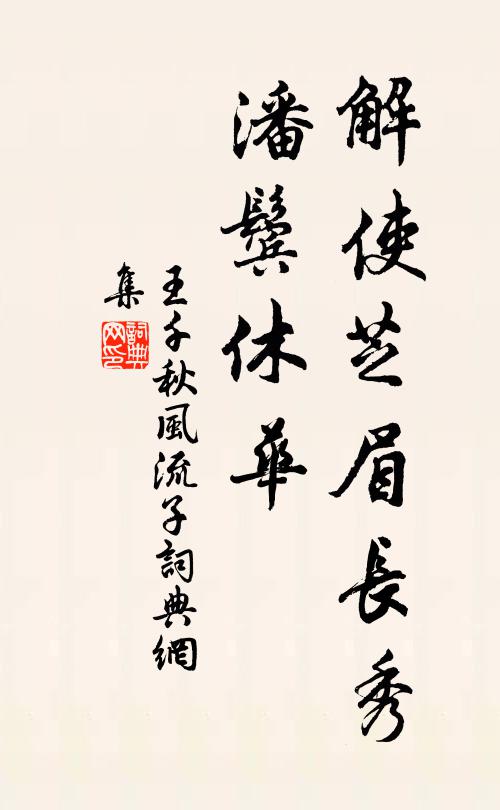 解使芝眉長秀
潘鬢休華
王千秋風流子詞典網
集
詞典网印